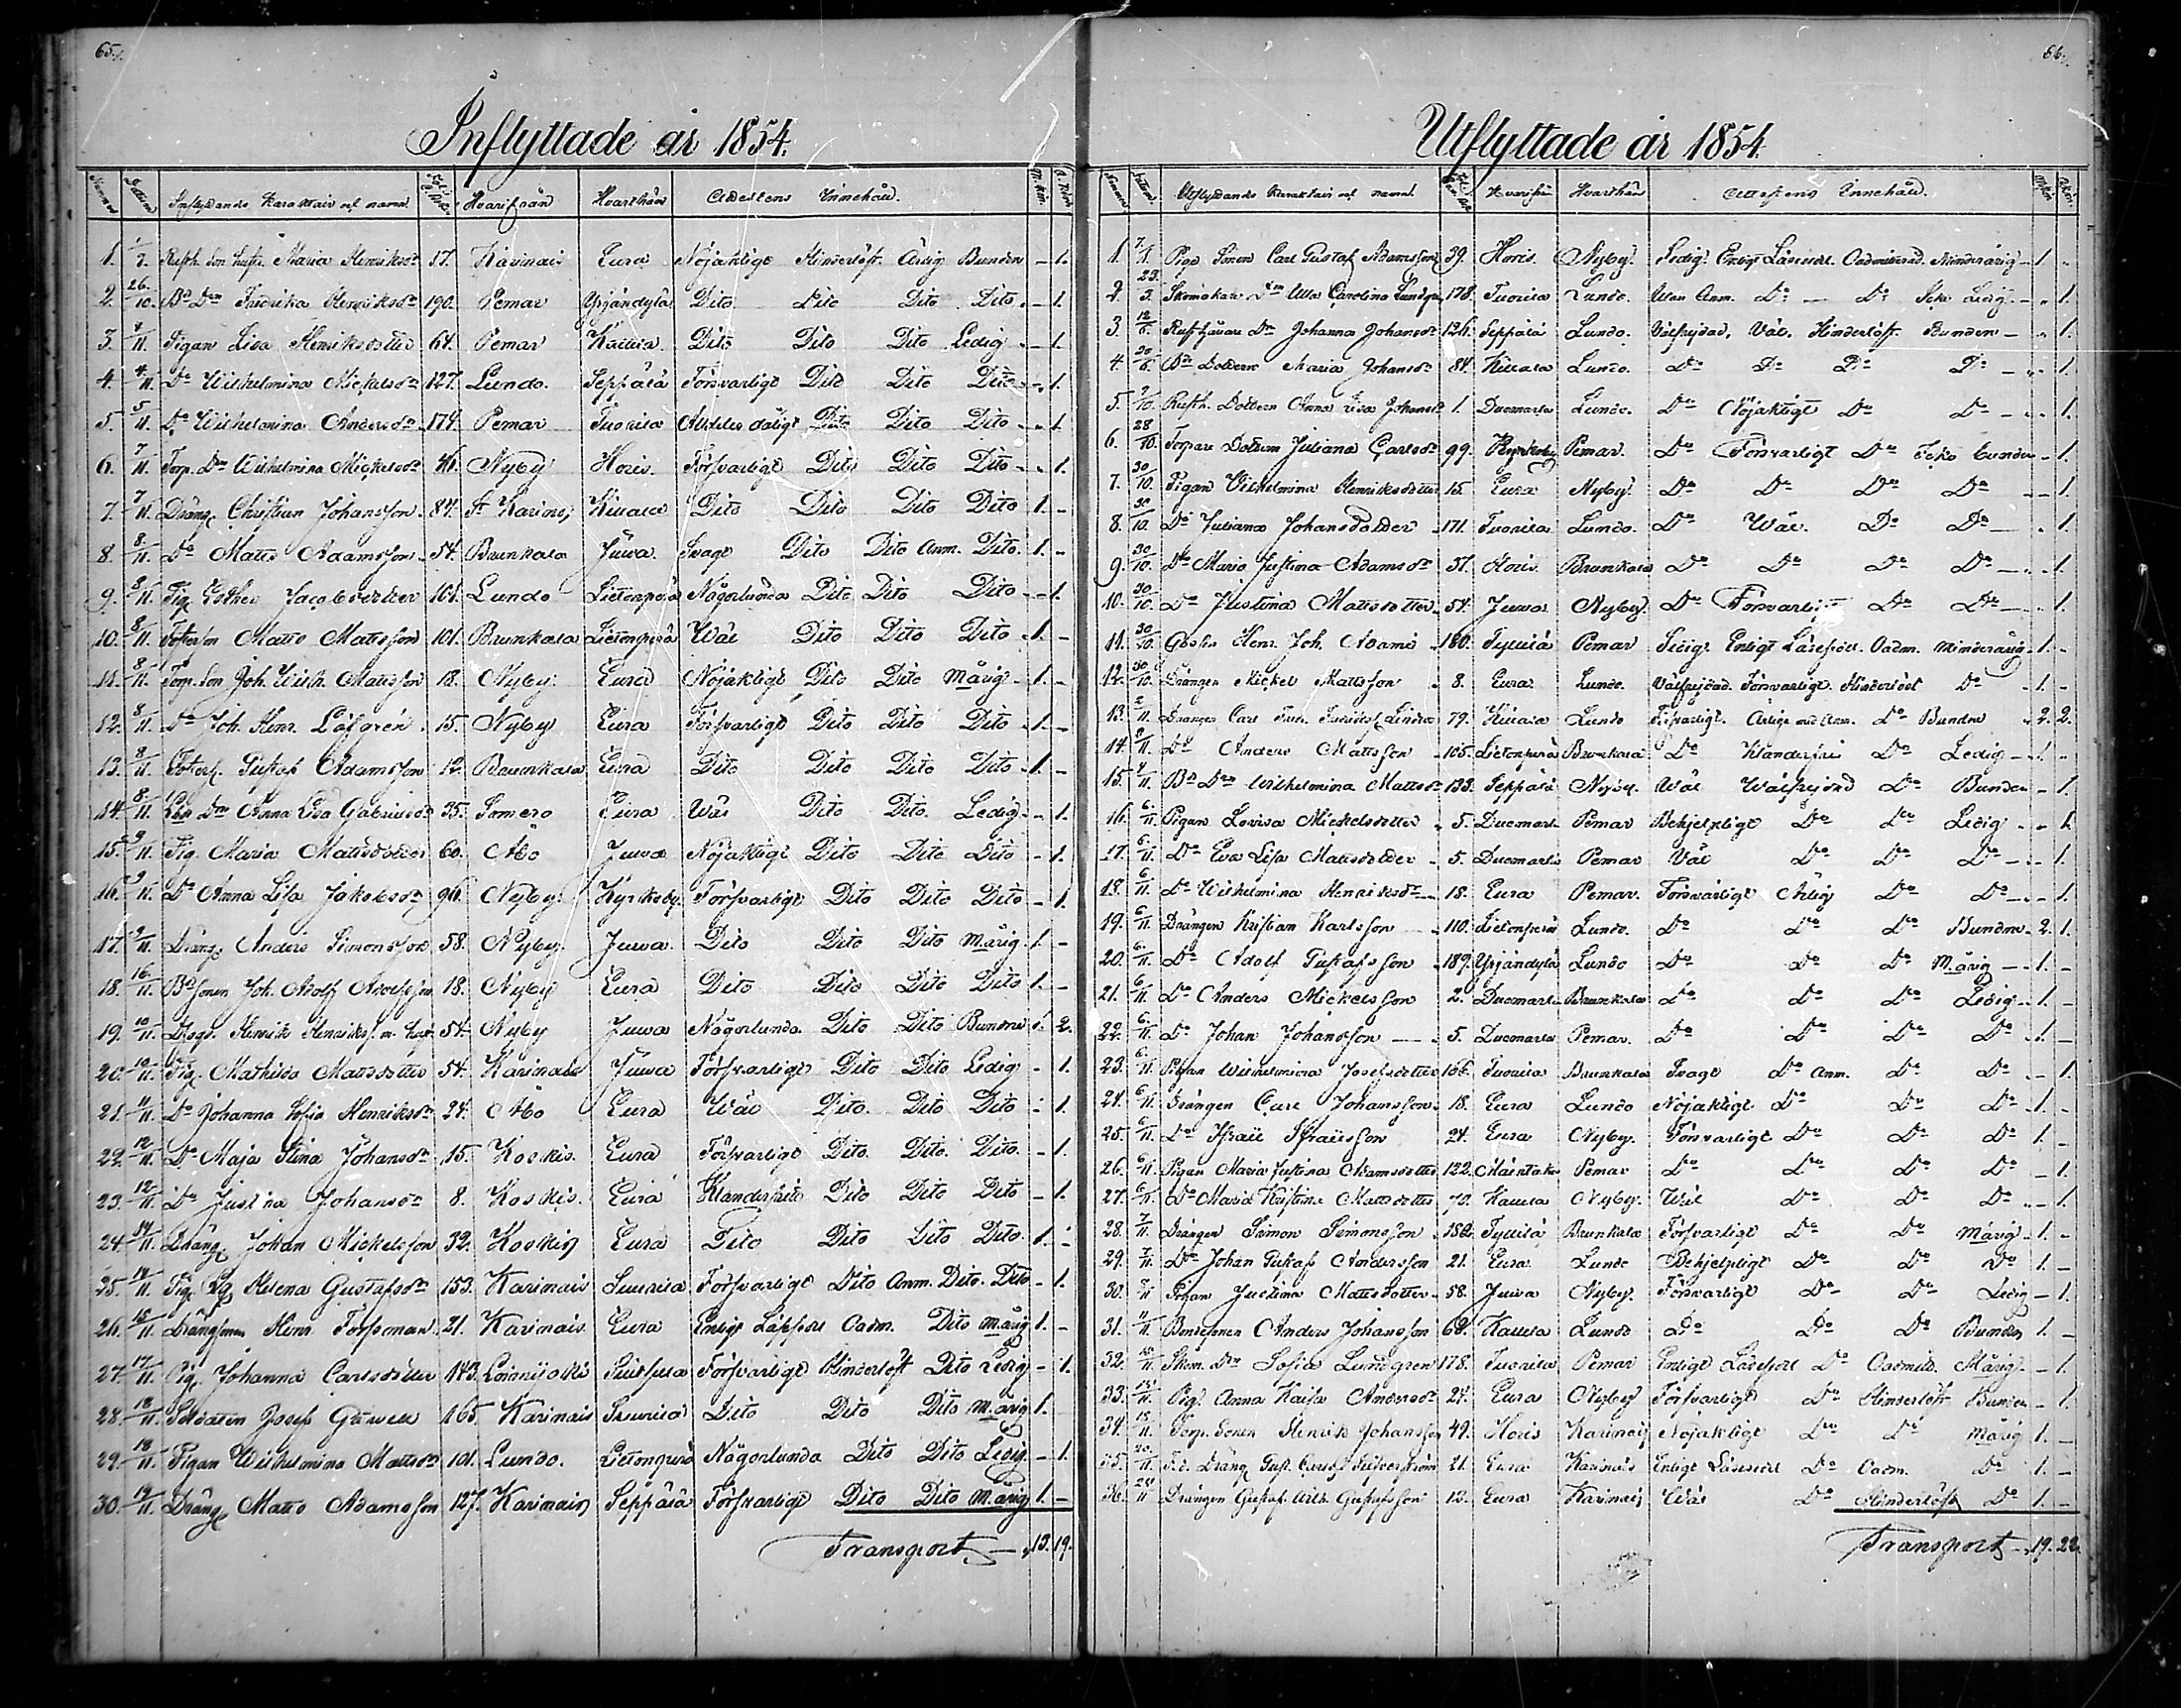 65.
Inflyttade år 1854.
Nummer Datum Inflyttande Karaktair och namn. Hvarifrån Hvarthän Attestens Innehåll. M. Kön. Q. Kön
1. 1/7. Rusth. Son hustr. Maria Henriksdr 37. Karinais Eura Nöjaktigt Hinderlöst Ärlig Bunden - 1.
2. 26/10. Bd Drn Fredrika Henriksdr 190. Pemar Yrjändylä Dito Dito Dito Dito. - 1.
3. 4/11. Pigan Lisa Henriksdotter 64. Pemar Dito Dito Dito Ledig - 1.
4. 4/11. Do Wilhelmina Mickelsdr 127. Lundo. Seppälä Försvarligt Dito Dito Dito - 1.
5. 5/11. Do Wilhelmina Andersdr 174. Pemar Tuorila Alldeles dåligt Dito Dito Dito - 1.
6. 7/11. Torp. Drn Wilhelmina Mickelsdr 46. Nyby Horis. Försvarligt Dito Dito Dito - 1.
7. 7/11. Dräng. Christian Johansson 84. St Karins Dito Dito Dito Dito 1. -
8. 8/11. Do Matts Adamsson 54. Brunkala Juva. Svagt Dito Dito Anm. Dito. 1. -
9. 8/11. Pig. Esther Jacobsdotter 101. Lundo Lietenperä Någorlunda Dito Dito Dito - 1.
10. 8/11. Matts Mattsson 101. Brunkala Lietenperä Wäl Dito Dito Dito 1. -
11. 8/11. Torp. Son Joh. Wilh. Mattsson 18. Nyby Eura Nöjaktigt Dito Dito Mårig 1. -
12. 8/11. Do Joh. Henr. Löfgrén 15. Nyby Eura Försvarligt Dito Dito Dito 1. -
13. 8/11. Gustaf Adamsson 12. Brunkala Eura Dito Dito Dito Dito 1. -
14. 8/11. Drn Anna Lisa Gabrielsdr 35. Somero Eura Wäl Dito Dito. Ledig - 1.
15. 9/11. Pig. Maria Mattsdotter 60. Åbo Juva Nöjaktigt Dito Dito Dito - 1.
16. 9/11. Do Anna Lisa Jakobsdr 96. Nyby Kyrkoby Försvarligt Dito Dito Dito - 1.
17. 9/11. Dräng. Anders Simonsson 58. Nyby Juva Dito Dito Dito Mårig. 1. -
18. 16/11. Bdsonen Joh. Adolf Adolfsson 18. Nyby Eura Dito Dito Dito Dito 1. -
19. 10/11. Henrik Henriksson m. hust. 54. Nyby Juva Någorlunda Dito Dito Bunden 1. 2.
20. 10/11. Pig. Mathilda Mattsdotter 54. Karinais Juva Försvarligt Dito Dito Ledig - 1.
21. 11/11. Do Johanna Sofia Henriksdr 24. Åbo Eura Wäl Dito. Dito Dito - 1.
22. 12/11. Do Maja Stina Johansdr 15. Koskis. Eura Försvarligt Dito. Dito. Dito. - 1.
23. 12/11. Do Justina Johansdr 8. Koskis. Eura Klanderfritt Dito Dito Dito - 1.
24. 14/11. Dräng. Johan Mickelsson 32. Koskis Eura Dito Dito Dito Dito. 1. -
25. 14/11. Pig. Helena Gustafsdr 153. Karinais Suurila Försvarligt Dito Anm. Dito. Dito - 1.
26. 15/11. Drängsonen Henr. Forssman 21. Karinais Eura Enligt Läsesed. Oadm. Dito Mårig 1. -
27. 17/11. Pig. Johanna Carlsdotter 143. Loimijoki Försvarligt Hinderlöst Dito Ledig - 1.
28. 18/11. Soldaten Josef 165. Karinais Dito Dito Dito Mårig 1.
29. 18/11. Pigan Wilhelmina Mattsdr 101. Lundo. Lietenperä Någorlunda Dito Dito Ledig. - 1.
30. 19/11. Dräng. Matts Adamsson 127. Karinais Seppälä Försvarligt Dito Dito Mårig 1. -
Transport 13. 19.
66.
Utflyttade år 1854.
Nummer Datum Utflyttande Karaktair och namn. Hvarifrån Hvarthän Attestens Innehåll. Mkön Qkön.
1. 7/1. Piga Sonen Carl Gustaf Adamsson 39. Horis. Nyby. Ledigt Enligt Läsesed. Oadmitterad. Minderårig 1. -
2. 23/3. Skomakare Drn Ulla Carolina Lundgr. 178. Tuorila Lundo. Utan Anm. Do - Do Icke Ledig - 1.
3. 12/6. Rusthållare Dr Johanna Johansdr 126. Seppälä Lundo. Välfrejdad. Väl. Hinderlöst. Bunden - 1.
4. 20/6. Bd Dottern Maria Johansdr 84. Lundo. Do Do Do Do - 1.
5. 9/10. Rusth. Dottern Anna Lisa Johansdr 1. Ducmarla Lundo. Do Nöjaktigt Do Do - 1.
6. 28/10. Torpare Dottern Juliana Carlsdr 99. Kyrkoby Pemar. Do Försvarligt Do Icke bunden - 1.
7. 30/10. Pigan Wilhelmina Henriksdotter 15. Eura Nyby. Do Do Do Do - 1.
8. 30/10. Do Juliana Johansdotter 171. Tuorila Lundo. Do Wäl. Do Do - 1.
9. 30/10. Do Maria Justina Adamsdr 37. Horis Brunkala Do Do Do Do - 1.
10. 30/10. Do Justina Mattsdotter 54. Juwa. Nyby. Do Försvarligt Do Do - 1.
11. 30/10. Henr. Joh. Adams 180. Tyllilä Pemar Ledigt Enligt Läsesed. Oadm. Minderårig 1. -
12. 30/10. Drängen Mickel Mattsson 8. Eura. Lundo. Välfrejdad. Försvarligt. Hinderlöst Do 1. -
13. 2/11. Drängen Carl 79. Lundo Försvarligt. Ärlig Do Bunden 2. 2.
14. 4/11. Do Anders Mattsson 105. Lietenperä Brunkala Do Klanderfri Do Ledig 1. -
15. 4/11. Bd Drn Wilhelmina Mattsdr 133. Seppälä Nyby. Wäl Wälfrejdad Do Bunden - 1.
16. 6/11. Pigan Lovisa Mickelsdotter 5. Ducmarla Pemar Behjelpligt Do Do Ledig - 1.
17. 6/11. Do Eva Lisa Mattsdotter 5. Ducmarla Pemar Väl Do Do Do - 1.
18. 6/11. Do Wilhelmina Henriksdr 18. Eura Pemar. Försvarligt Ärlig Do Do - 1.
19. 6/11. Drängen Kristian Karlsson 110. Lietenperä Lundo. Do Do Do Bunden 2. 1.
20. 6/11. Do Adolf Gustafsson 189. Yrjändylä Lundo Do Do Do Mårig 1. -
21. 6/11. Do Anders Mickelsson 2. Ducmarla Brunkala Do Do Do Ledig 1. -
22. 6/11. Do Johan Johansson 5. Ducmarla Pemar. Do Do Do Do 1. -
23. 6/11. Pigan Wilhelmina Josefsdotter 166. Tuorila Brunkala Svagt Do Anm. Do Do - 1.
24. 6/11. Drängen Carl Johansson 18. Eura Lundo Nöjaktigt Do Do Do 1. -
25. 6/11. Do Israel Israelsson 24. Eura Nyby. Försvarligt Do Do Do 1. -
26. 6/11. Pigan Maria Justina Adamsdotter 122. Pemar Do Do Do Do - 1.
27. 6/11. Do Maria Kristina Mattsdotter 70. Nyby. Wäl Do Do Do - 1.
28. 7/11. Drängen Simon Simonsson 180. Tyllilä Brunkala Försvarligt Do Do Mårig 1. -
29. 7/11. Do Johan Gustaf Andersson 21. Eura Lundo Behjelpligt Do Do Do 1. -
30. Pigan Justina Mattsdotter 58. Juva Nyby. Försvarligt Do Do Ledig - 1.
31. 11/11. Bondsonen Anders Johansson 68. Lundo Do Do Do Bunden 1. -
32. 15/11. Skom. Drn Sofia Lundgren 178. Tuorila Pemar Enligt Läsesed. Do Oadmitt. Mårig. - 1.
33. 15/11. Pig. Anna Kaisa Andersdr 24. Eura Nyby Försvarligt Do Hinderlöst Bunden - 1.
34. 15/11. Torp. Sonen Henrik Johansson 49. Horis Karinais Nöjaktigt Do Do Mårig 1. -
35. 20/11. Dräng. Gust. Carlss. Silfverström 21. Eura Karinais Enligt Läsesed. Do Oadm. Do 1. -
36. 24/11 Drängen Gustaf Wilh. Gustafsson 12. Eura Karinais Wäl Do Hinderlöst Do 1. -
Transport 19. 22.